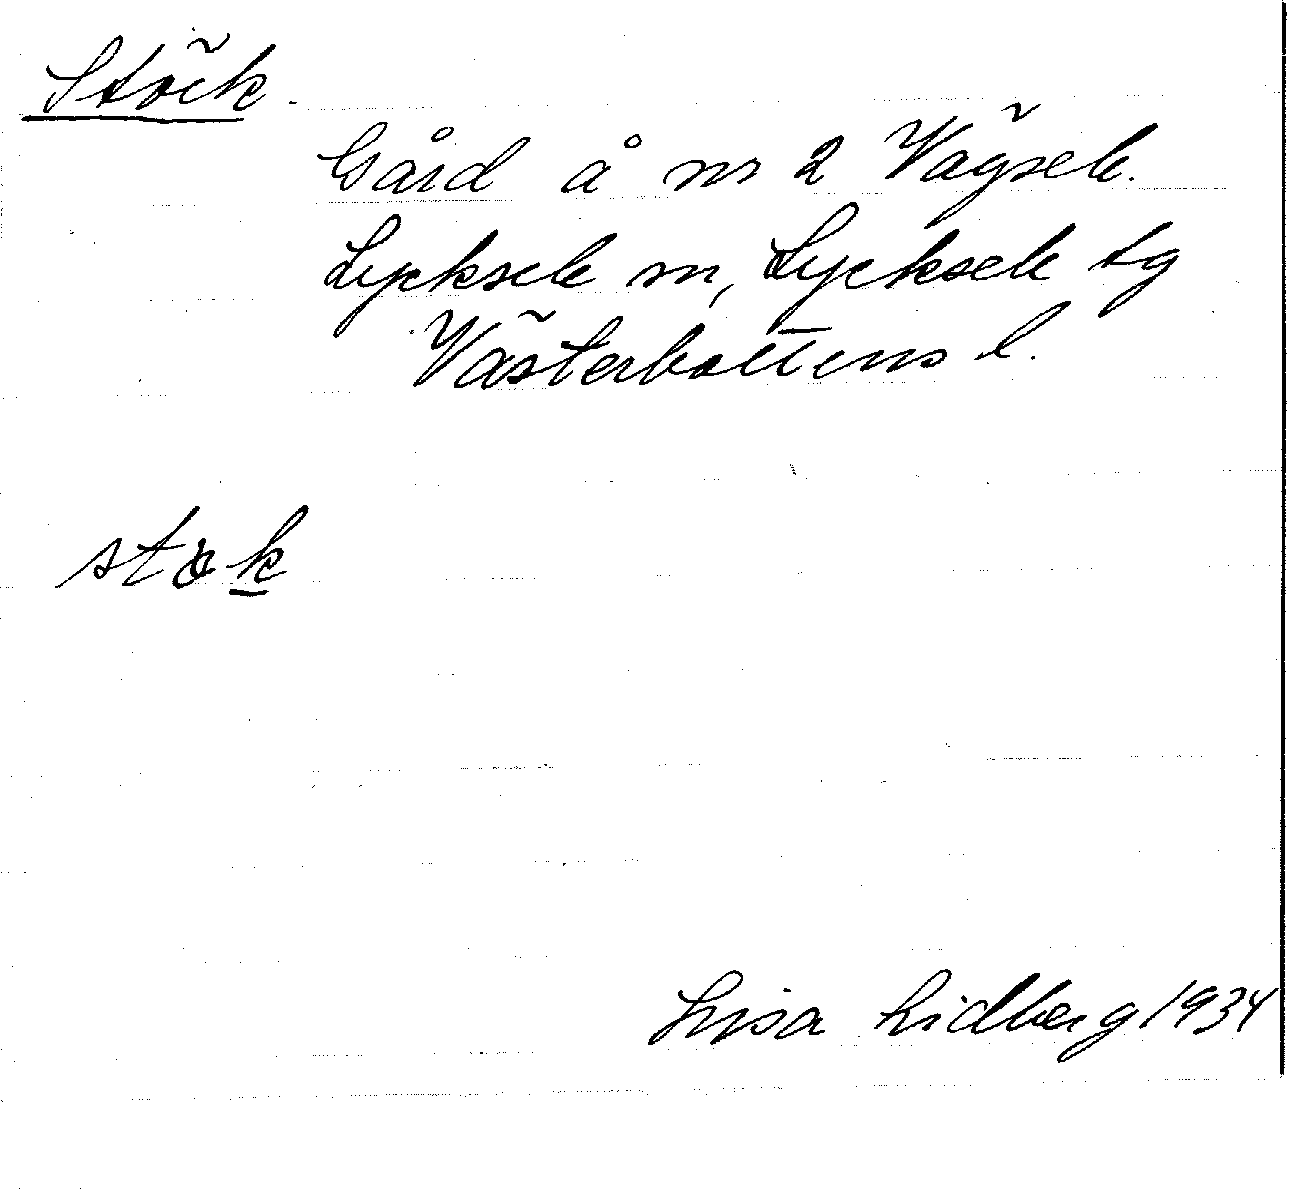 Stöck.
Gård å nr 2 Vägsele.
Lycksele m, Lycksele tg
Västerbottens l.
støk
Lisa Lidberg 1934